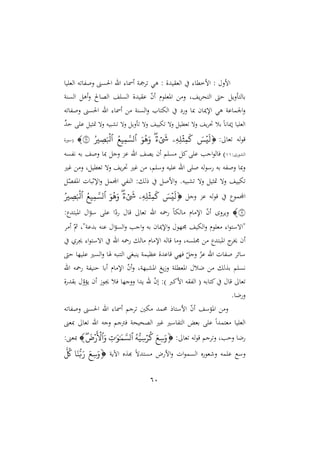 الأول : الأخطاء في العقيدة : هي ترجمة أسماء الله الحسنى وصفاته العليا
بالتأويل حتى التحريف، ومن المعلوم أنّ عقيدة السلف الصالح وأهل السنة
والجماعة هي الإيمان بما ورد في الكتاب والسنة من أسماء الله الحسنى وصفاته
العليا إيماناً بلا تحريف ولا تعطيل ولا تكييف ولا تأويل ولا تشبيه ولا تمثيل على حدّ
قوله تعالى: ﴿لَيْسَ كَمِثْلِهِۦ شَىْءٌ ۖ وَهُوَ ٱلسَّمِيعُ ٱلْبَصِيرُ ۝﴾ (سورة
الشورى:١١) فالواجب على كل مسلم أن يصف الله عز وجل بما وصف به نفسه
وبما وصفه به رسوله صلى الله عليه وسلم، من غير تحريف ولا تعطيل، ومن غير
تكييف ولا تمثيل ولا تشبيه. والأصل في ذلك: النفي المجمل والإثبات المفصّل
المجموع في قوله عز وجل ﴿لَيْسَ كَمِثْلِهِۦ شَىْءٌ ۖ وَهُوَ ٱلسَّمِيعُ ٱلْبَصِيرُ
۝﴾ ويروى أنّ الإمام مالكاً رحمه الله تعالى قال ردّا على سؤال المبتدع:
"الاستواء معلوم والكيف مجهول والإيمان به واجب والسؤال عنه بدعة"، ثمّ أمر
أن يخرج المبتدع من مجلسه، وما قاله الإمام مالك رحمه الله في الاستواء يجري في
سائر صفات الله عزّ وجلّ فهي قاعدة عظيمة ينبغي التنبه لها والسير عليها حتى
نسلم بذلك من ضلال المعطلة وزيغ المشبهة، وأنّ الإمام أبا حنيفة رحمه الله
تعالى قال في كتابه ( الفقه الأكبر ): إنّ لله يدا ووجها فلا يجوز أن يؤوّل بقدرة
ورضا.
ومن المؤسف أنّ الأستاذ محمد مكين ترجم أسماء الله الحسنى وصفاته
العليا معتمداً على بعض التفاسير غير الصحيحة فترجم وجه الله تعالى بمعنى
رضا وحب، وترجم قوله تعالى: ﴿وَسِعَ كُرْسِيُّهُ ٱلسَّمَٰوَٰتِ وَٱلْأَرْضَ﴾ بمعنى:
وسع علمه وشعوره السموات والأرض مستدلاً بهذه الآية ﴿رَبَّنَا وَسِعْتَ كُلَّ
٦٠